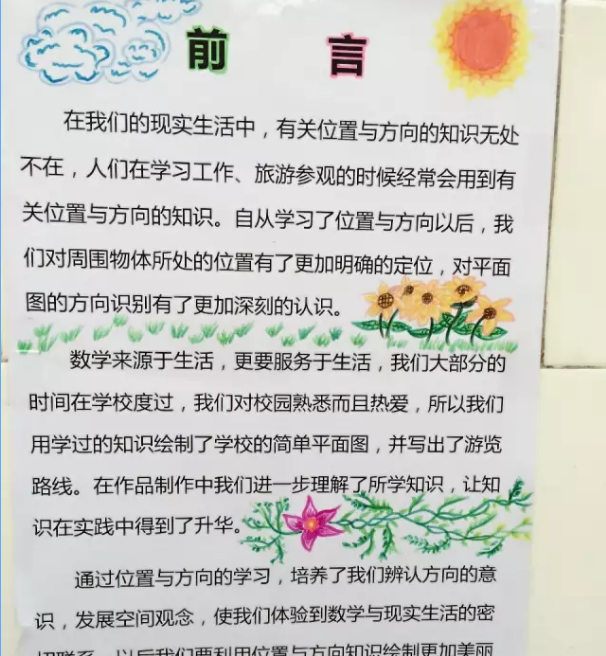 前 言
在我们的现实生活中，有关位置与方向的知识无处
不在，人们在学习工作、旅游参观的时候经常会用到有
关位置与方向的知识。自从学习了位置与方向以后，我
们对周围物体所处的位置有了更加明确的定位，对平面
图的方向识别有了更加深刻的认识。
数学来源于生活，更要服务于生活，我们大部分的
时间在学校度过，我们对校园熟悉而且热爱，所以我们
用学过的知识绘制了学校的简单平面图，并写出了游览
路线。在作品制作中我们进一步理解了所学知识，让知
识在实践中得到了升华。
通过位置与方向的学习，培养了我们辨认方向的意
识，发展空间观念，使我们体验到数学与现实生活的密
切联系，以后我们要利用位置与方向知识绘制更加美丽